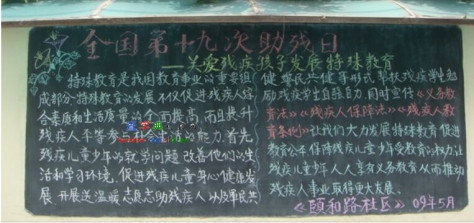 全国第十九次助残日
——关爱残疾孩子发展特殊教育
特殊教育是我国教育事业的重要组
成部分特殊教育的发展不仅促进残疾人综
合素质和生活质量的全面提高,而且提升
残疾人平等参与社会的能力.首先
残疾儿童少年的就学问题 改善他们的生
活和学习环境,促进残疾儿童身心健康发
展 开展送温暖志愿助残疾人 以及军民共
健 军民共健等形式 帮扶残疾学生勉
励残疾学生自强自力 同时宣传《义务教
育法》《残疾人保障法》《残疾人教
育条例》让我们大力发展特殊教育 促进
教育公平 保障残疾儿童少年受教育的权力 让
残疾儿童少年人人享有义务教育 从而推动
残疾人事业取得更大发展.
《颐和路社区》 09年5月